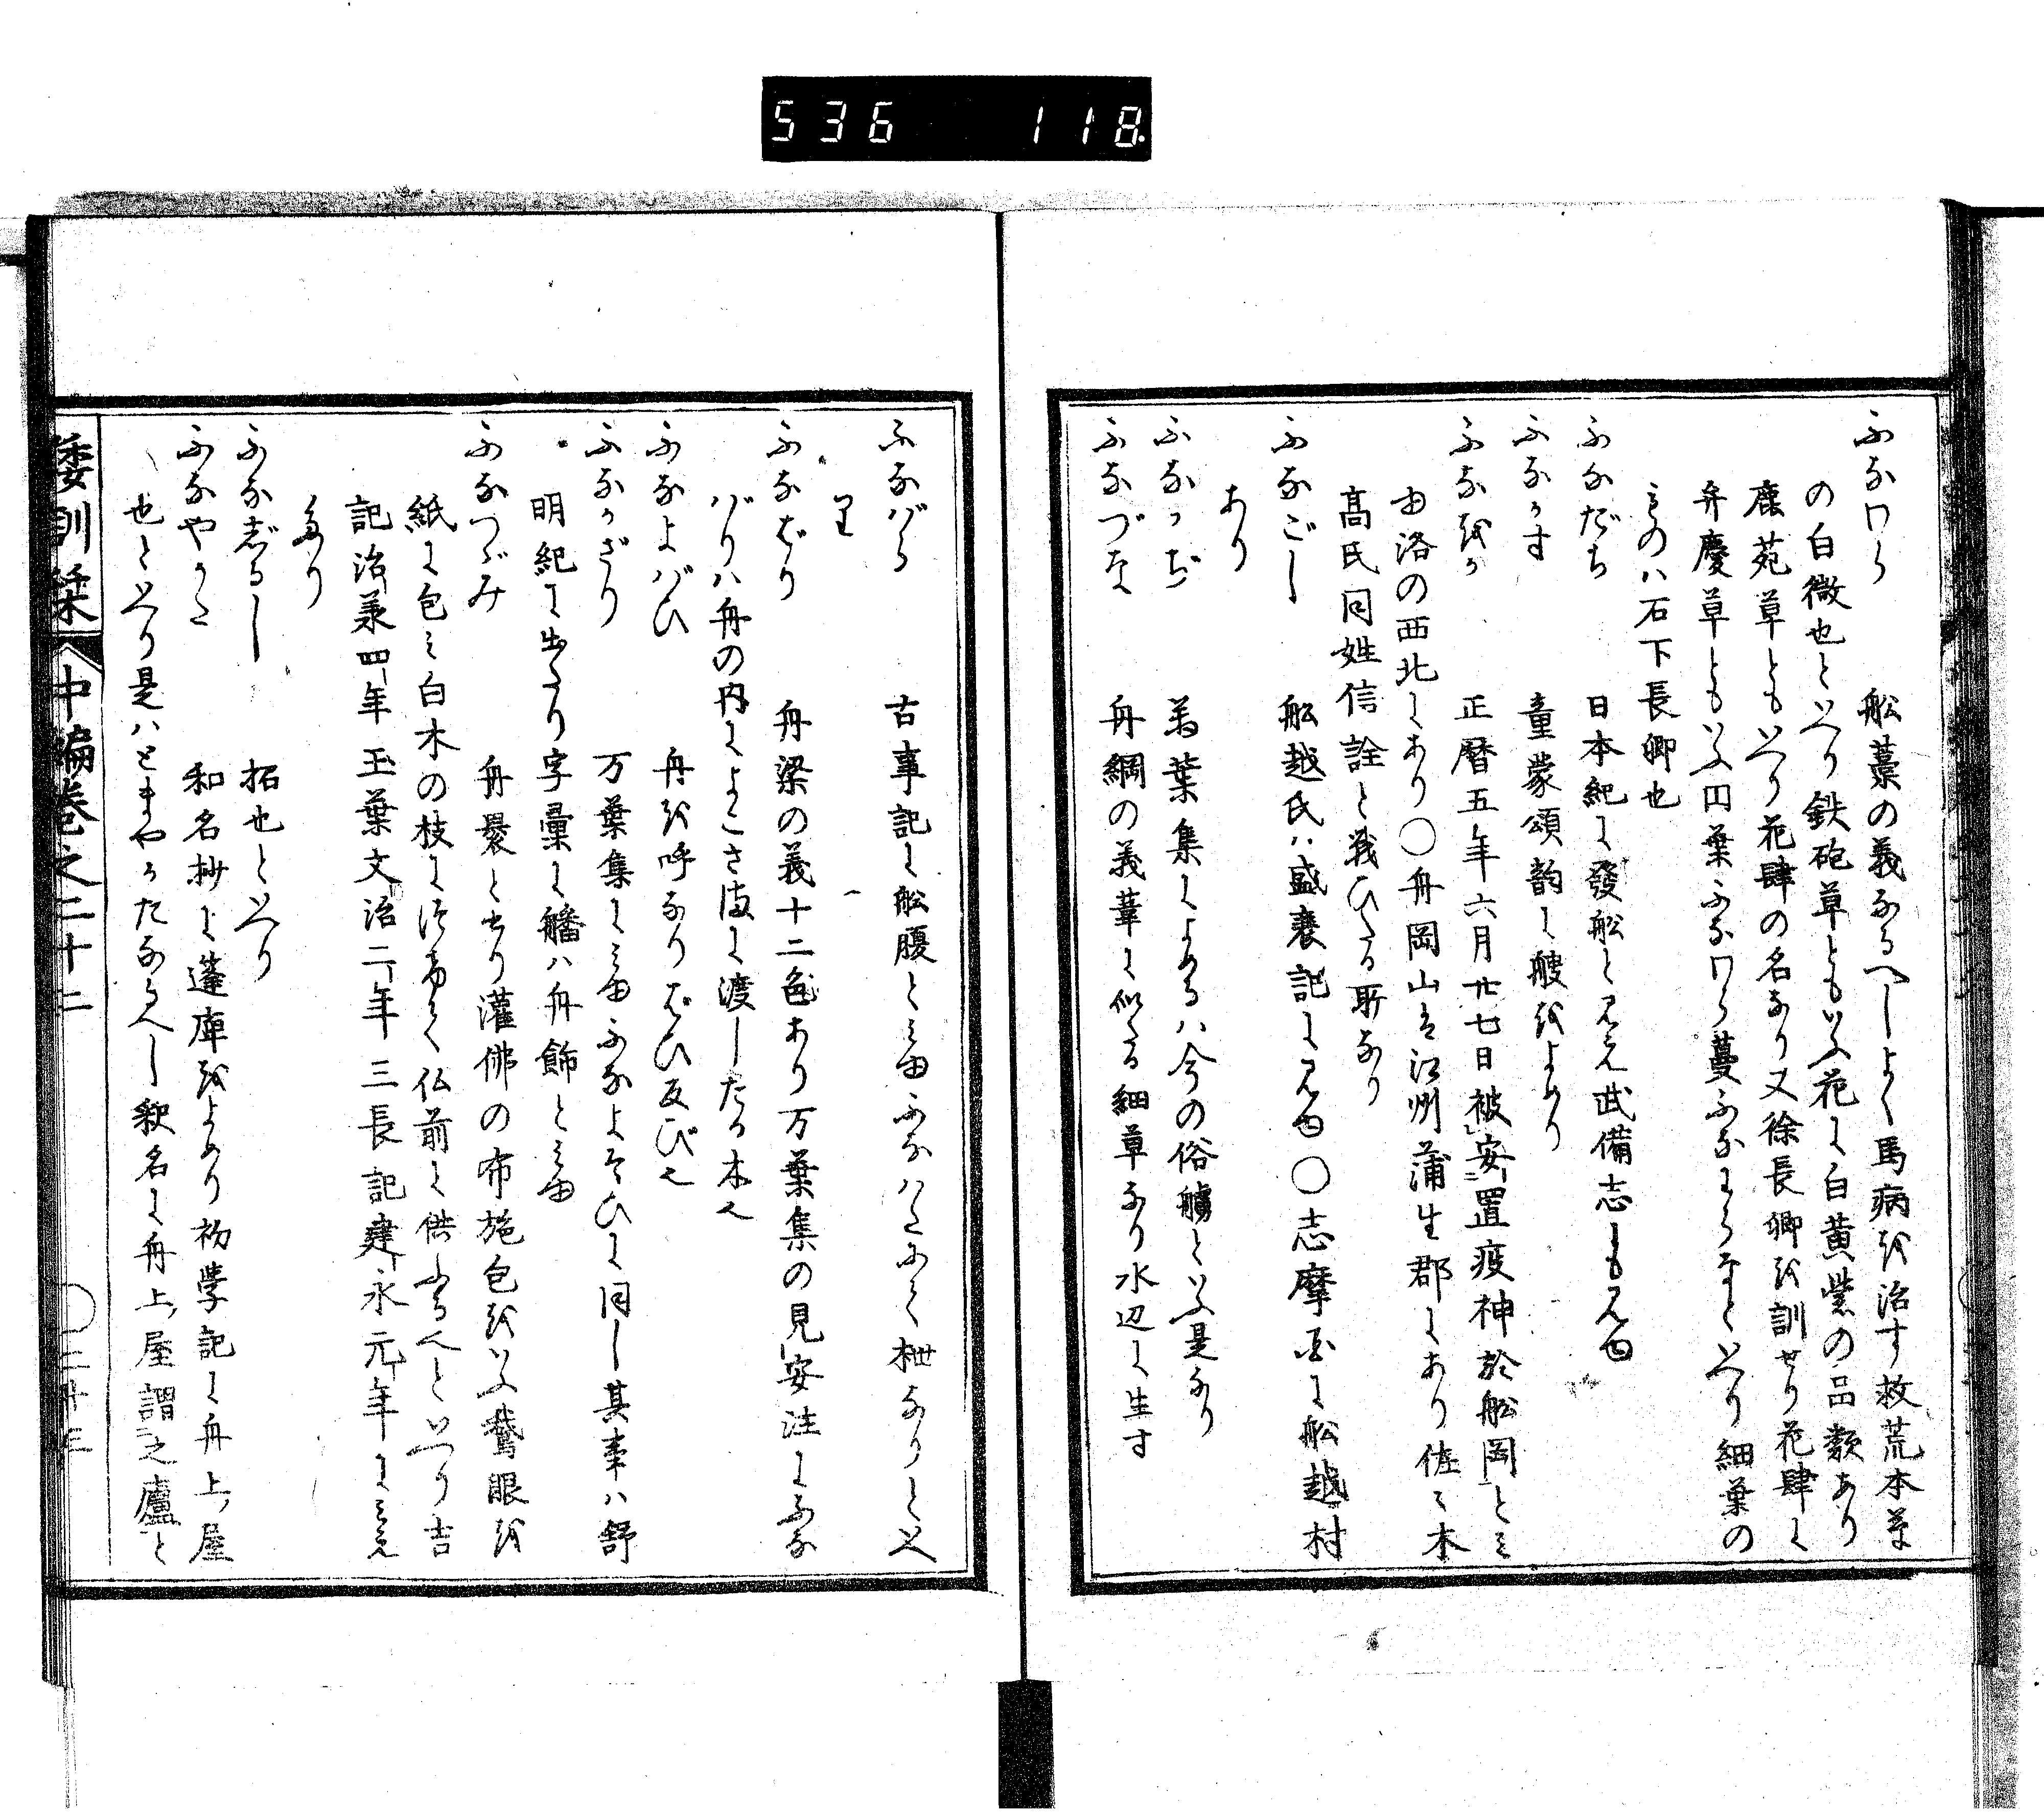 536 118
ふなわら 舩藁の義なるへしよく馬病を治す救荒本草
の白薇也といへり鉄砲草ともいふ花に白黄紫の品類あり
鹿苑草ともいへり花肆の名なり又徐長卿を訓せり花肆に
弁慶草ともいふ円葉ふなわら蔓ふなわらなといへり細葉の
ものハ石下長卿也
ふなだち 日本紀に發舩と見え武備志にも見ゆ
ふなかす 童蒙頌韵に艘をよめり
ふなをか 正暦五年六月廿七日被安置疫神於舩岡とミ
ゆ洛の西北にあり〇舟岡山は江州蒲生郡にあり佐々木
髙氏同姓信詮と戦ひたる所なり
ふなごし 舩越氏ハ盛衰記に見ゆ〇志摩国に舩越村
あり
ふなかぢ 萬葉集によめるハ今の俗艣といふ是なり
ふなづな 舟綱の義葦に似る細草なり水辺に生す
ふなばら 古事記に舩腹とミゆふなハたふく枻なりとい
り
ふなばり 舟梁の義十二色あり万葉集の見安注にふな
ばりハ舟の内によこさまに渡したる木也
ふなよバひ 舟を呼なりよばひ反び也
ふなかざり 万葉集にミゆふなよそひに同し其事ハ舒
明紀に出たり字彙に艢ハ舟飾とミゆ
ふなつゝみ 舟褁と書り灌佛の布施包をいふ鵞眼を
紙に包ミ白木の枝につけて仏前に供ふる也といへり吉
記治承四年玉葉文治二年三長記建永元年にミえ
たり
ふなじるし 拓也といへり
ふなやかた 和名抄に蓬庫をよめり初学記に舟上屋
也といへり是ハとまやかたなるへし釈名に舟上屋謂之廬と
倭訓栞 中編巻之二十二 〇二十三